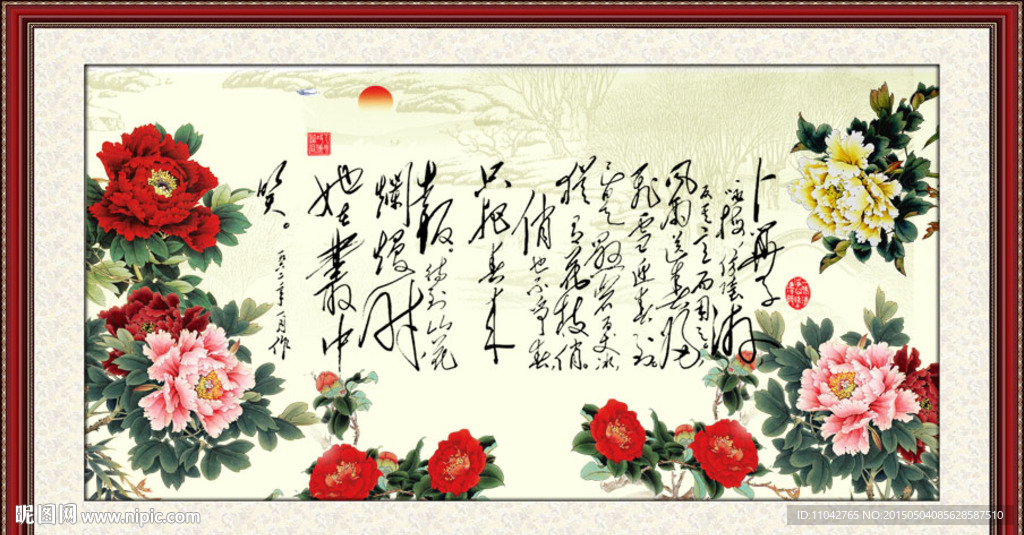 卜算子
咏梅 仃陆游
反其意而用之
风雨送春归
飞雪迎春到
已是悬崖百丈冰
犹有花枝俏
俏也不争春
只把春来
报 待到山花
烂漫时
她在丛中
笑。
一九六二年一月作
昵图网 www.nipic.com
ID:11042765 NO:20150504085628587510